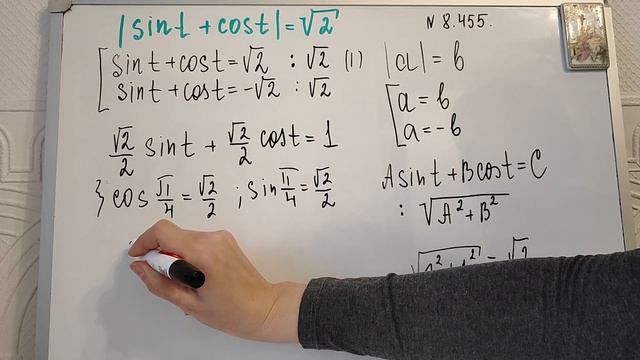 |sint + cost| = √2
N 8.455.
[ sint + cost = √2 : √2 (1)
sint + cost = -√2 : √2
√2/2 sint + √2/2 cost = 1
} cos π/4 = √2/2 ; sin π/4 = √2/2
|a| = b
[ a = b
a = -b
A sint + B cost = C
: √A² + B²